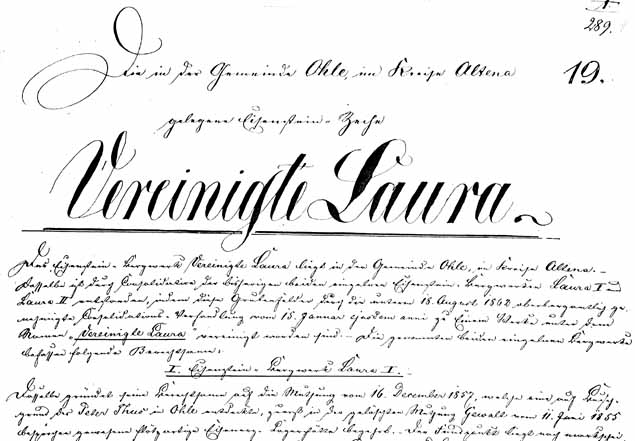 289.
Die in der Gemeinde Ohle, im Kreise Altena
19.
gelegene Eisenstein-Zeche
Vereinigte Laura.
Das Eisenstein-Bergwerk Vereinigte Laura liegt in der Gemeinde Ohle, in Kreise Altena. –
Dasselbe ist durch Consolidation der bisherigen beiden einzelnen Eisenstein-Bergwerken Laura I und
Laura II entstanden, indem diese Grubenfelder durch die unterm 18. August 1862 oberbergamtlich ge-
nehmigte Consolidations-Verhandlung vom 15. Januar ejusdem anni zu Einem Werke unter dem
Namen „Vereinigte Laura" vereinigt worden sind. – Die genannten beiden einzelnen Bergwerke
befassen folgende Berechtsame:
I. Eisenstein-Bergwerk Laura I.
Dasselbe gründet sein Bergrecht auf die Muthung vom 16. December 1857, welche eine auf
grund des Peter Thus in Ohle entdeckte, zuerst in der gelöschten Muthung Gewalt vom 11. Juni 1855
besprochen gewesene Eisenerz-Lagerstätte begehrt. – Der Fundpunkt liegt nach